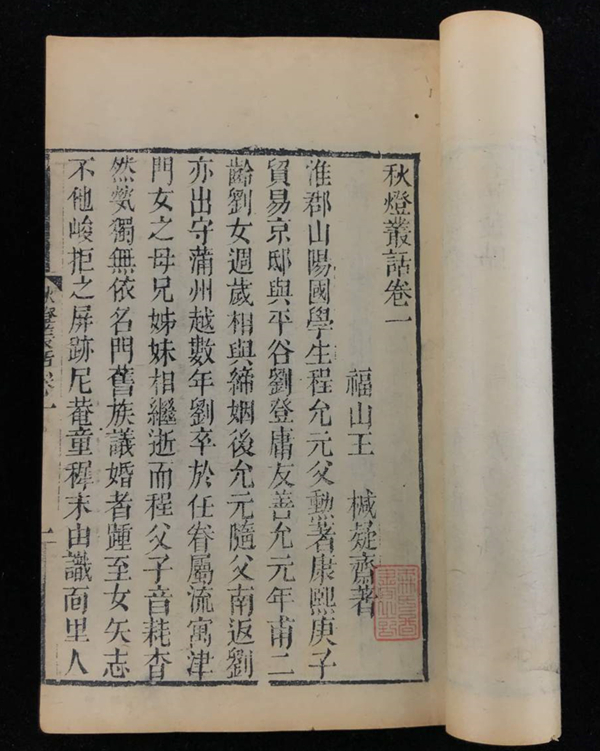 秋燈叢話卷一
福山王 椷凝齋著
淮郡山陽國學生程允元父勲著康熙庚子
貿易京邸與平谷劉登庸友善允元年甫二
齡劉女週歲相與締姻後允元隨父南返劉
亦出守蒲州越數年劉卒於任眷屬流寓津
門女之母兄姊妹相繼逝而程父子音耗杳
然煢獨無依名門舊族議婚者踵至女矢志
不他峻拒之屏跡尼菴童穉未由識面里人
秋燈叢話卷一
一